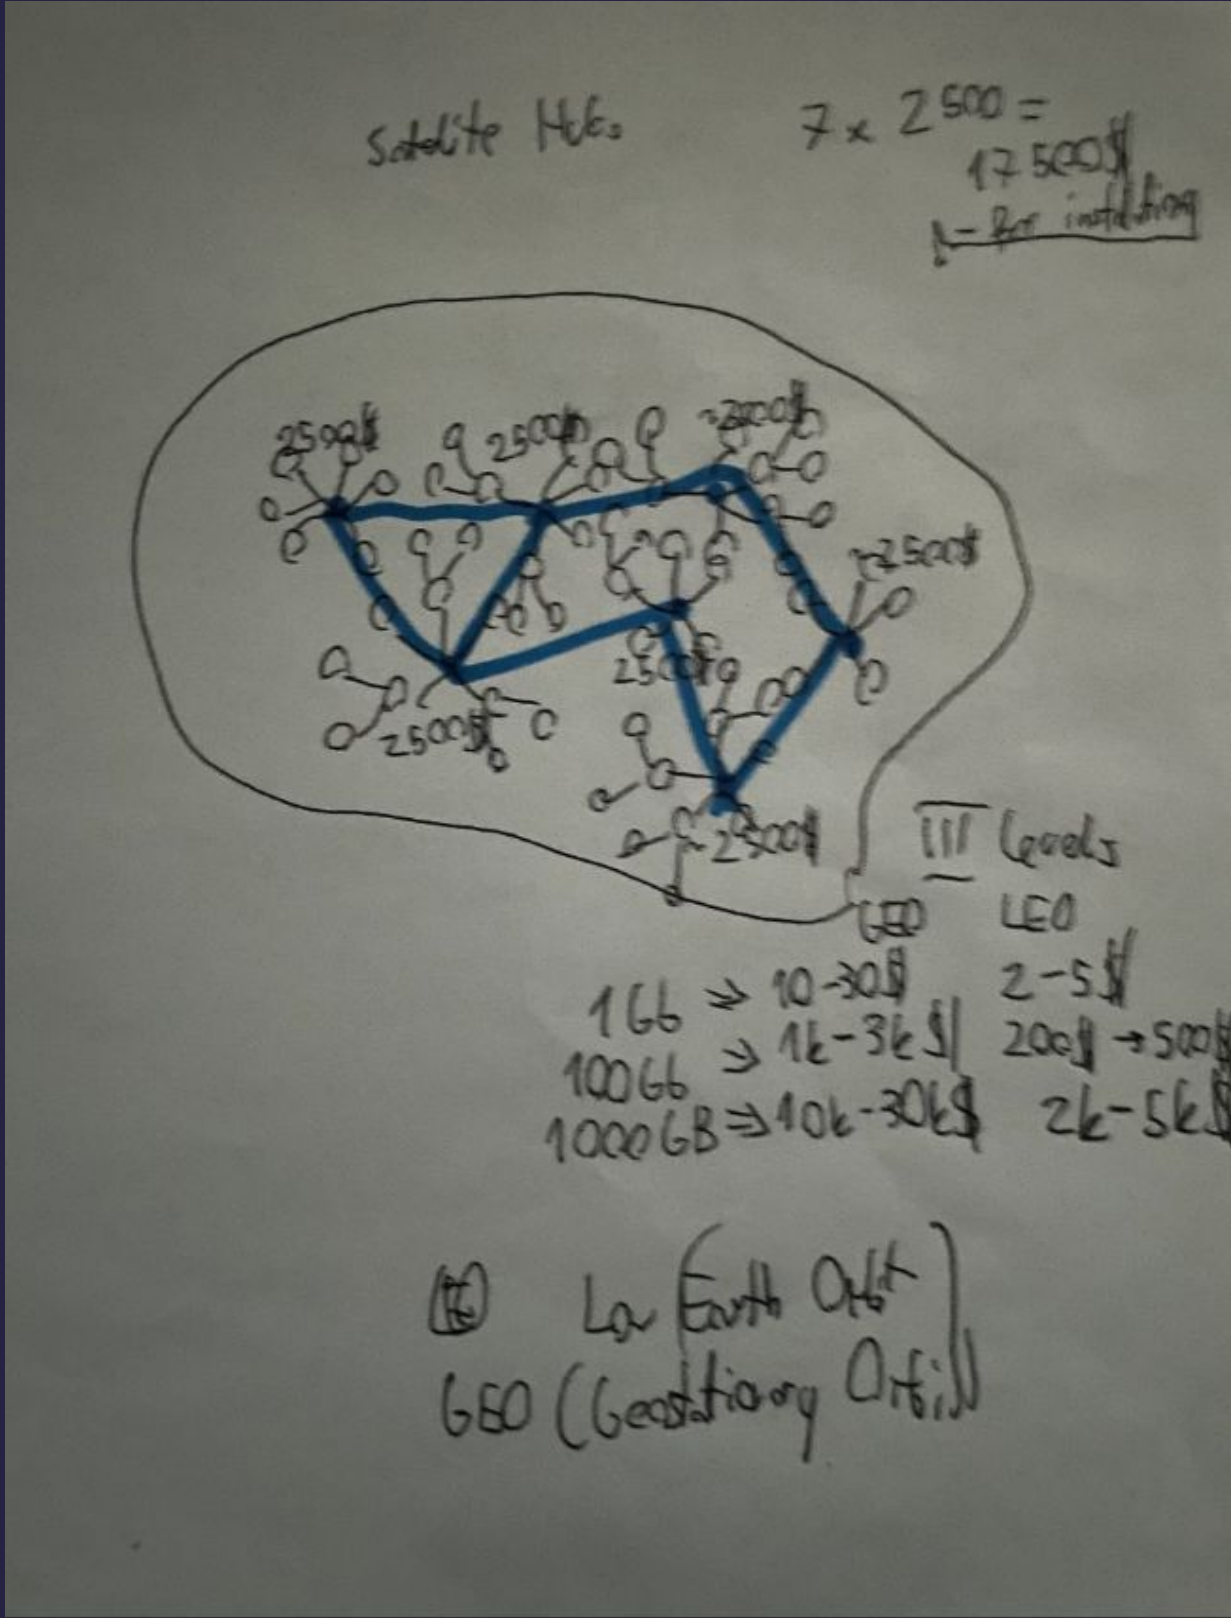 Satelite
7 x 2500 =
17500$
- For
2500$
2500$
~2500$
~2500$
2500$
2500$
~2500$
III levels
GEO LEO
1Gb => 10-30$ 2-5$
100Gb => 1k-3k$ 200$ → 500$
1000GB => 10k-30k$ 2k-5k$
Low Earth Orbit
GEO (Geostationary